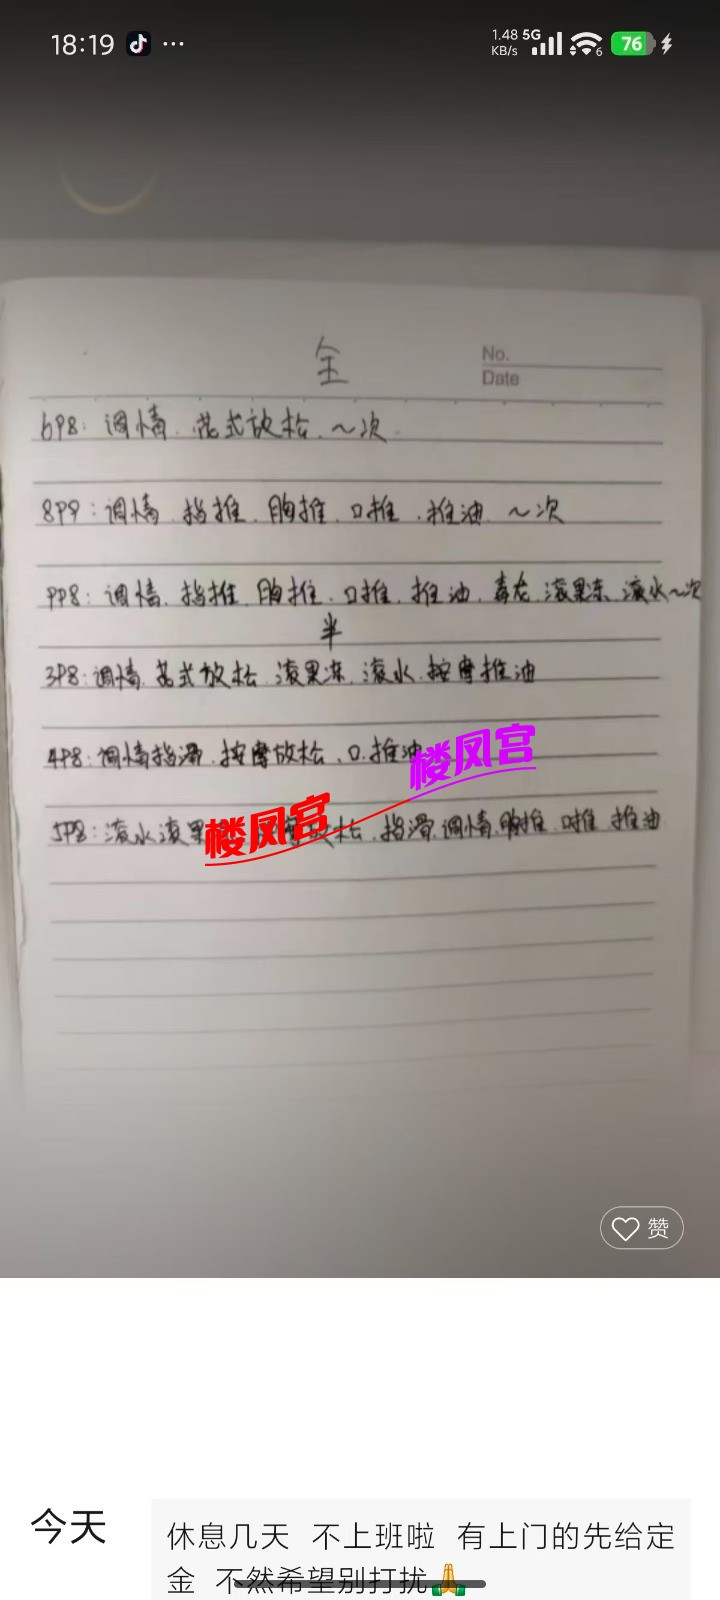 18:19
1.48 KB/s 5G 6 76
全
No.
Date
6P8: 调情、花式放松、~次
8P9: 调情、指推、胸推、口推、推油、~次
PP8: 调情、指推、胸推、口推、推油、毒龙、滚果冻、滚水~次
半
3P8: 调情、花式放松、滚果冻、滚水、按摩推油
4P8: 调情指滑、按摩放松、口、推油
楼凤宫
楼凤宫
5P8: 滚水滚果 放松、指滑、调情、胸推、口推、推油
赞
今天
休息几天 不上班啦 有上门的先给定
金 不然希望别打扰🙏